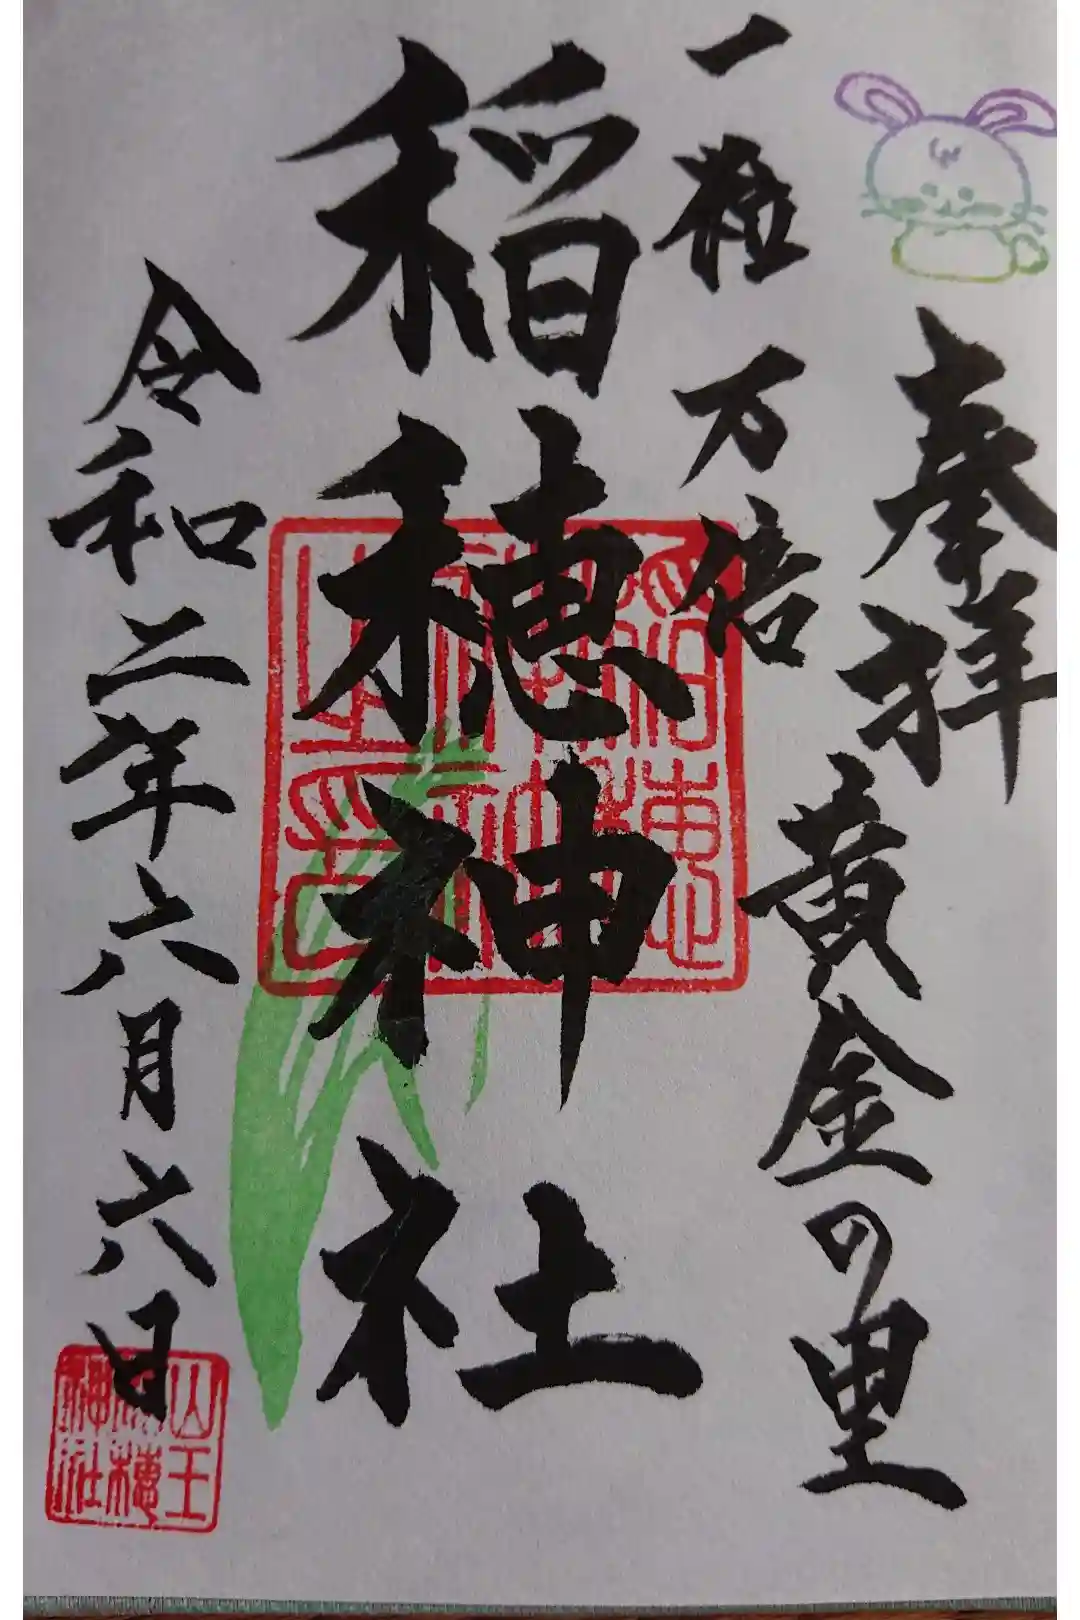 奉拝
一粒万倍
黄金の里
稲穂神社
令和二年六月六日
稲穂
神社
之印
山王
稲穂
神社